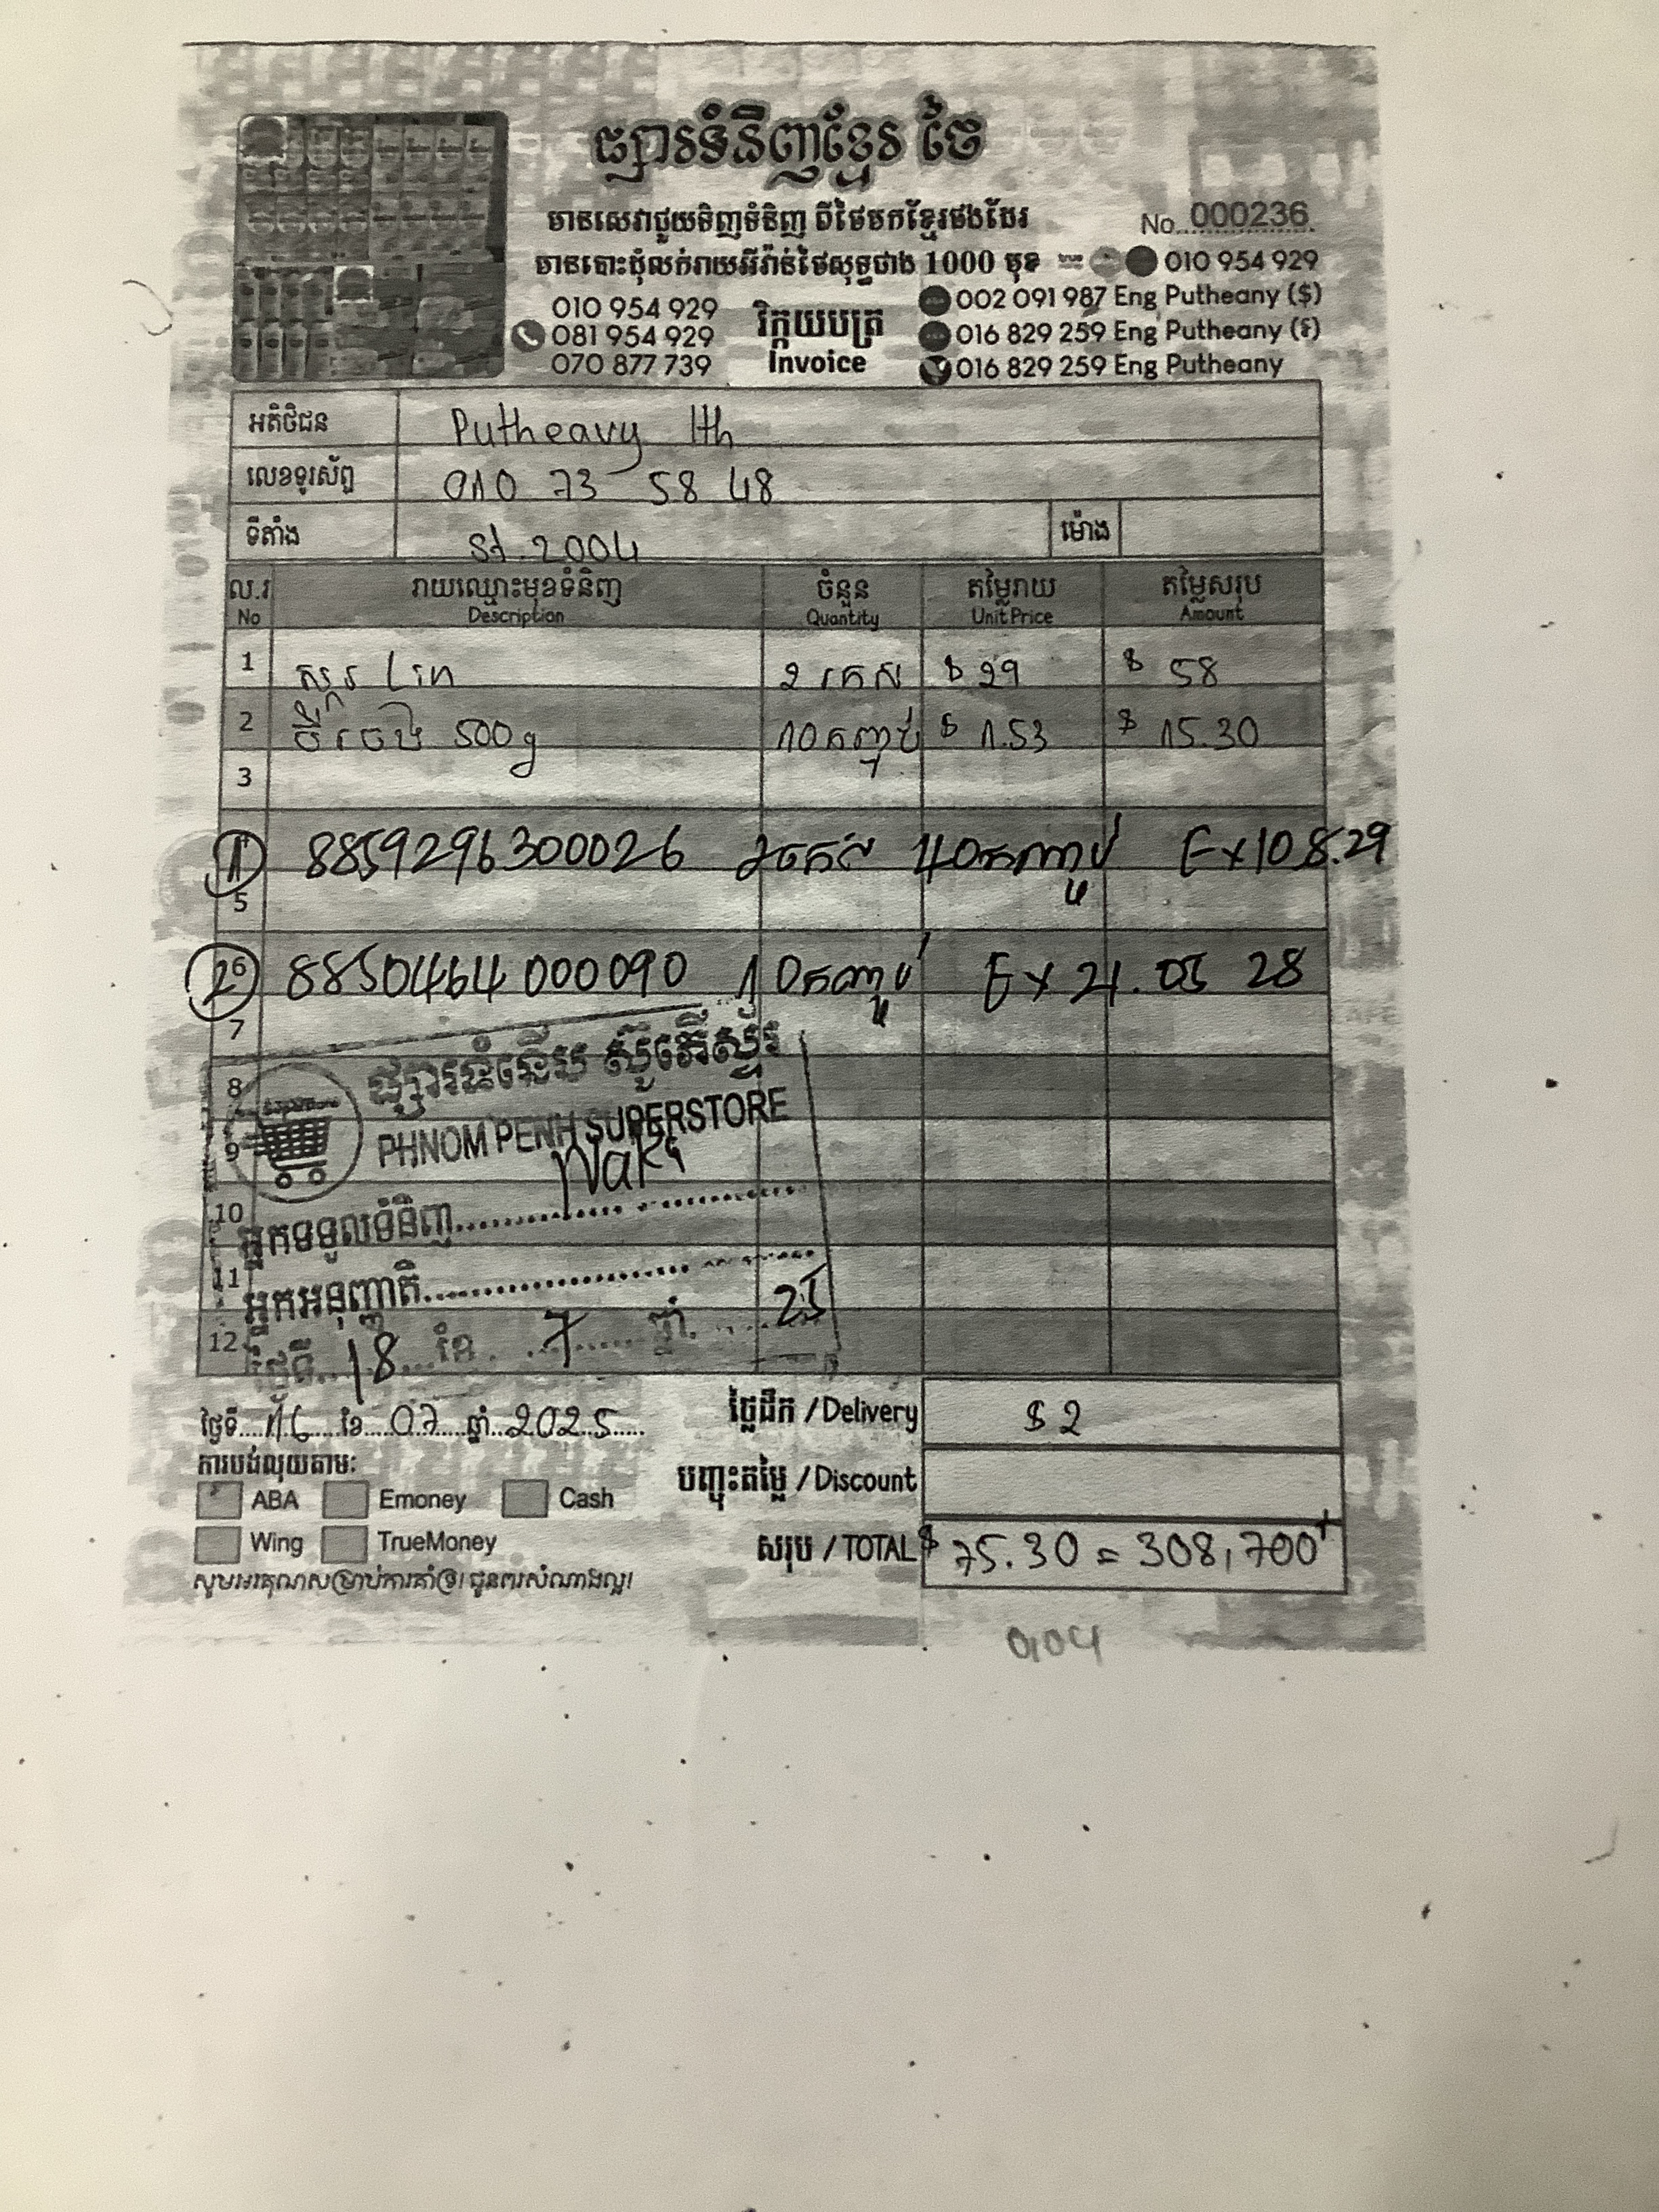 ផ្សារទំនិញខ្មែរ ថៃ
មានសេវាជួយទិញទំនិញ ពីថៃមកខ្មែរផងដែរ
No. 000236
មានបោះដុំលក់រាយអីវ៉ាន់ថៃសុទ្ធជាង 1000 មុខ
010 954 929
010 954 929
081 954 929
070 877 739
វិក្កយបត្រ
Invoice
002 091 987 Eng Putheany ($)
016 829 259 Eng Putheany (៛)
016 829 259 Eng Putheany
អតិថិជន Putheavy Ith
លេខទូរស័ព្ទ 010 73 58 48
ទីតាំង St.2004 ម៉ោង
ល.រ រាយឈ្មោះមុខទំនិញ ចំនួន តម្លៃរាយ តម្លៃសរុប
No Description Quantity Unit Price Amount
1 ស្ករ Lin 2 កេស $ 29 $ 58
2 500g 10កញ្ចប់ $ 1.53 $ 15.30
3
1 8859296300026 2កេស 40កញ្ចប់ Ex 10 8.29
5
2 6 8850464000090 10កញ្ចប់ Ex 21.05 28
7
8
PHNOM PENH SUPERSTORE
9
10 អ្នកទទួលទំនិញ
11 អ្នកអនុញ្ញាតិ
12 ថ្ងៃទី 18 ខែ 7 ឆ្នាំ 25
ថ្ងៃទី 16 ខែ 07 ឆ្នាំ 2025
ថ្លៃដឹក / Delivery $ 2
ការបង់លុយតាម:
ABA Emoney Cash
បញ្ចុះតម្លៃ / Discount
Wing TrueMoney
សរុប / TOTAL $ 75.30 = 308,700៛
សូមអរគុណសម្រាប់ការគាំទ្រ! ជូនពរសំណាងល្អ!